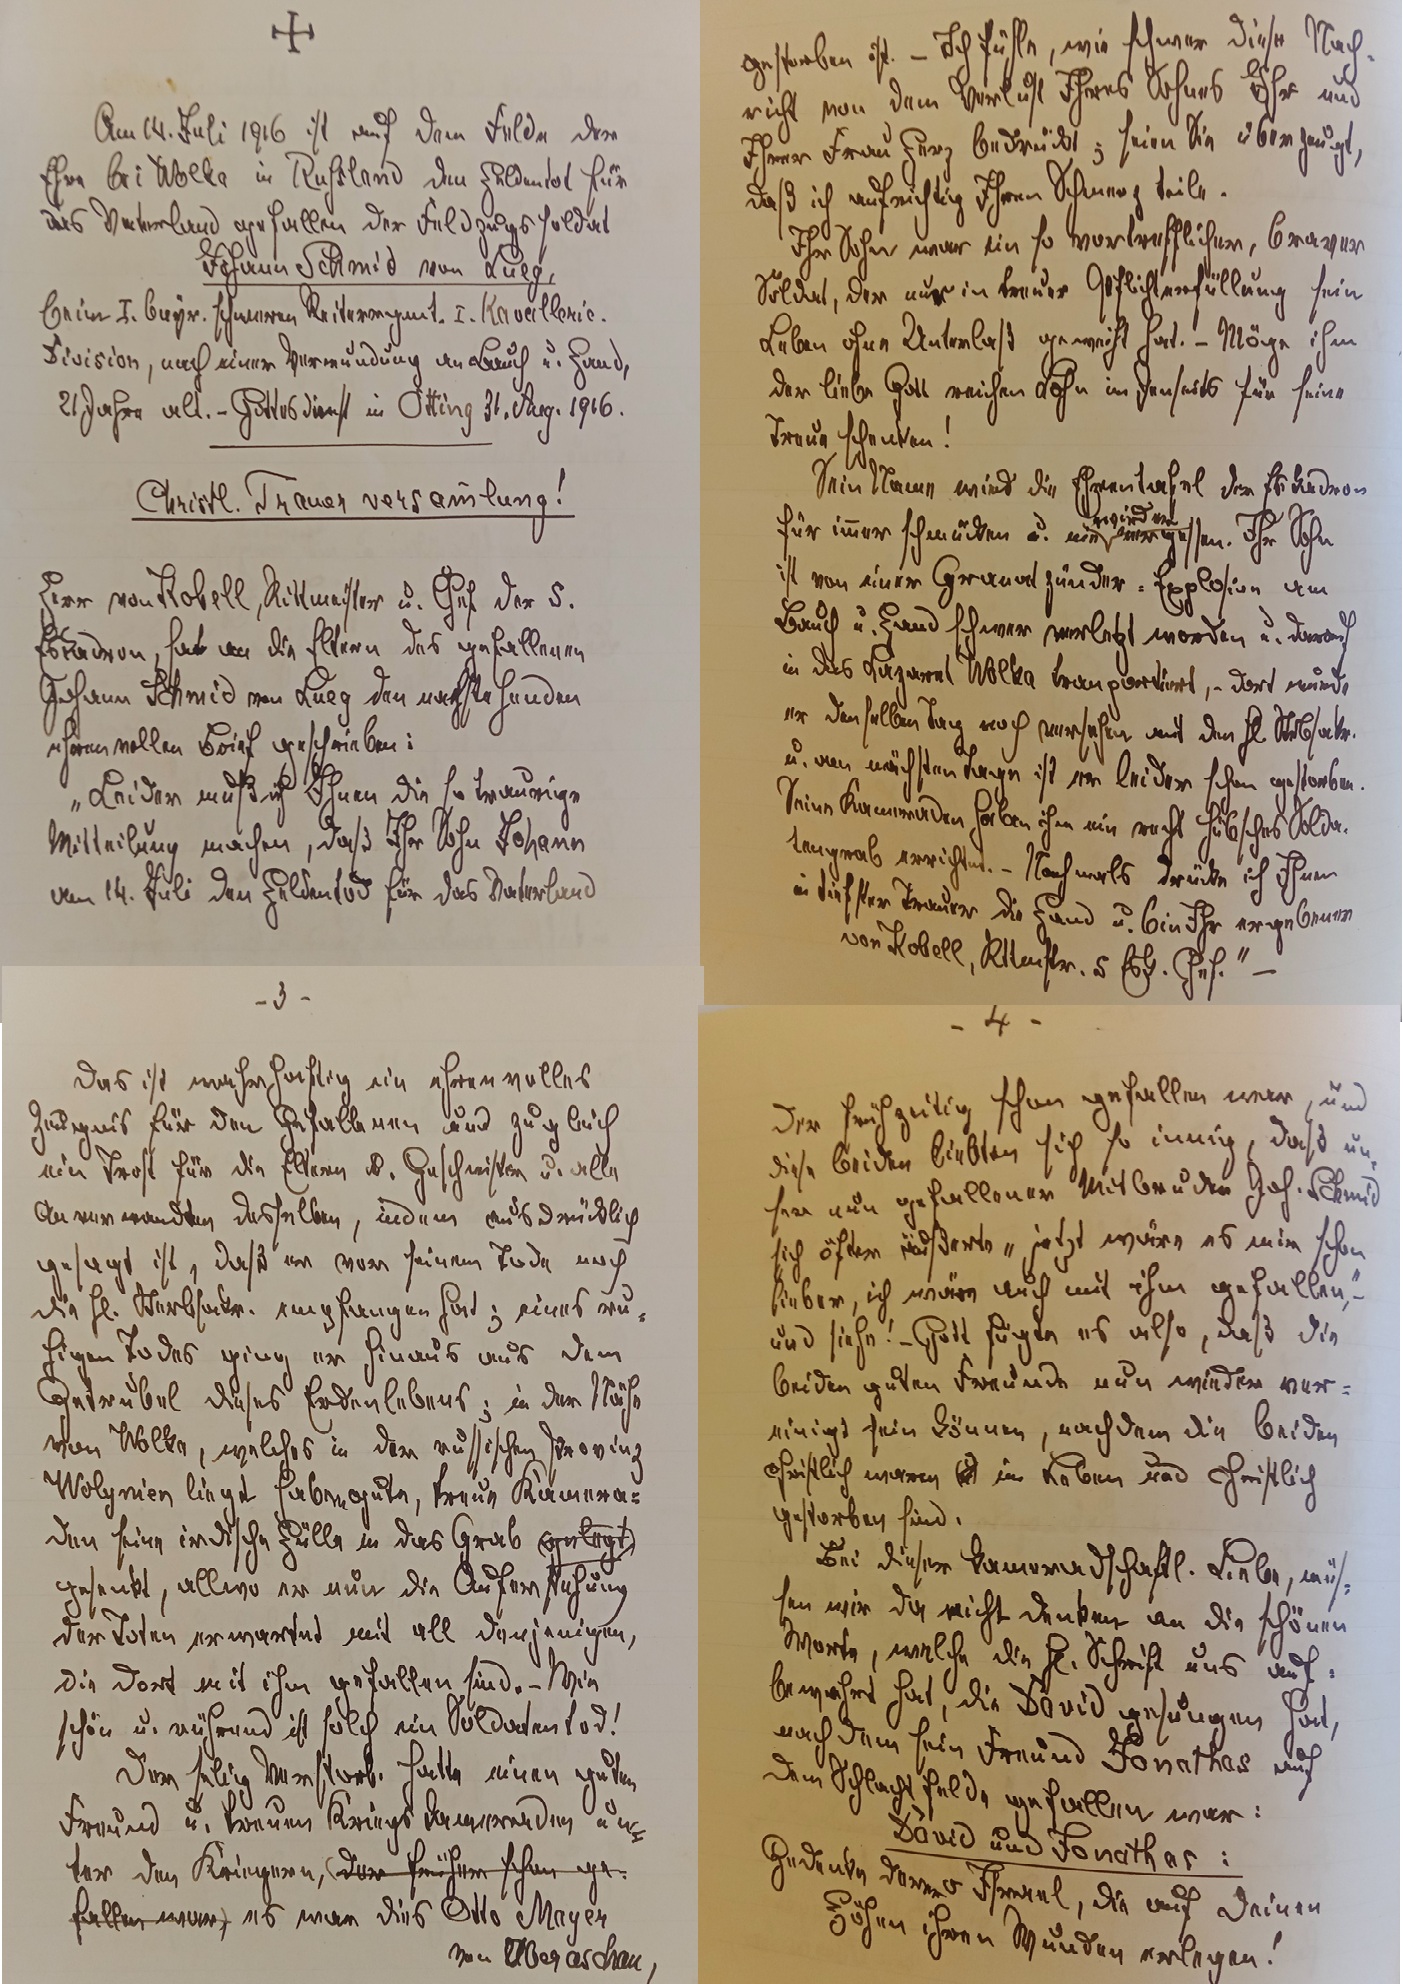 Am 14. Juli 1916 ist auf dem Felde der
Ehre bei Wolka in Rußland den Heldentot für
das Vaterland gefallen der Feldzugssoldat
Johann Schmid von Lueg,
beim I. bayr. schweren Reiterregmt. I. Kavallerie-
Division, nach einer Verwundung an Bauch u. Hand,
21 Jahre alt. - Gottesdienst in Otting 31. Aug. 1916.
Christl. Trauerversam̅lung!
Herr von Kobell, Rittmeister u. Chef der 5.
Eskadron, hat an die Eltern des gefallenen
Johann Schmid von Lueg den nachstehenden
ehrenvollen Brief geschrieben:
„Leider muß ich Ihnen die so traurige
Mitteilung machen, daß Ihr Sohn Johann
am 14. Juli den Heldentod für das Vaterland
gestorben ist. - Ich fühle, wie schwer diese Nach-
richt von dem Verlust Ihres Sohnes Ihr und
Ihrer Frau Herz bedrückt; seien Sie überzeugt,
daß ich aufrichtig Ihren Schmerz teile.
Ihr Sohn war ein so vortrefflicher, braver
Soldat, der nur in treuer Pflichterfüllung sein
Leben ohne Unterlaß geweiht hat. - Möge ihm
der liebe Gott reichen Lohn im Jenseits für seine
Treue schenken!
Sein Name wird die Ehrentafel der Eskadron
für im̅er schmücken u. nie wieder vergessen. Ihr Sohn
ist von einer Granatzünder-Explosion am
Bauch u. Hand schwer verletzt worden u. darauf
in das Lazaret Wolka tranportiert, - dort wurde
er denselben Tag noch versehen mit den hl. Stbsakr.
u. am nächsten Tage ist er leider schon gestorben.
Seine Kameraden haben ihm ein recht hübsches Solda-
tengrab errichtet. - Nochmals drücke ich Ihnen
in tiefster Trauer die Hand u. bin Ihr ergebener
von Kobell, Rittmstr. 5 Esk. Chef." -
- 3 -
Das ist wahrhaftig ein ehrenvolles
Zeugnis für den Gefallenen und zugleich
ein Trost für die Eltern u. Geschwister u. alle
Anverwandten desselben, indem ausdrücklich
gesagt ist, daß er vor seinem Tode noch
die hl. Sterbsakr. empfangen hat; eines ru-
higen Todes ging er hinaus aus dem
Getrubel dieses Erdenlebens; in der Nähe
von Wolka, welches in der russischen Provinz
Wolynien liegt haben gute, treue Kamera=
den seine irdische Hülle in das Grab (gelegt)
gesenkt, allwo er nun die Auferstehung
der Toten erwartet mit all denjenigen,
die dort mit ihm gefallen sind. - Wie
schön u. rührend ist solch ein Soldatentod!
Der selig Verstorb. hatte einen guten
Freund u. treuen Kriegskameraden un=
ter den Kriegern, (der früher schon ge-
fallen war) es war dies Otto Mayer
von Weraschau,
- 4 -
der frühzeitig schon gefallen war, und
diese beiden liebten sich so innig, daß un-
ser nun gefallener Mitbruder Joh. Schmid
sich öfter äußerte „jetzt wäre es mir schon
lieber, ich wäre auch mit ihm gefallen," -
und siehe! - Gott fügte es also, daß die
beiden guten Freunde nun wieder ver=
einigt sein können, nachdem die beiden
christlich waren im Leben und christlich
gestorben sind.
Bei dieser kameradschaftl. Liebe, müs-
sen wir da nicht denken an die schönen
Worte, welche die hl. Schrift uns auf-
bewahrt hat, die David gesungen hat,
nachdem sein Freund Jonathas auf
dem Schlachtfelde gefallen war:
David und Jonathas:
Gedenke derer o Israel, die auf deinen
Höhen ihren Wunden erlegen!